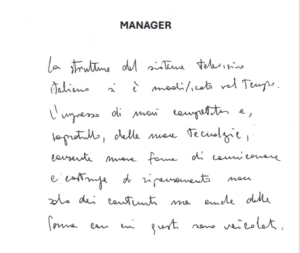 MANAGER
La struttura del sistema televisivo
italiano si è modificata nel tempo.
L'ingresso di nuovi competitor e,
soprattutto, delle nuove tecnologie,
consente nuove forme di comunicazione
e costringe al ripensamento non
solo dei contenuti ma anche delle
forme con cui questi sono veicolati.